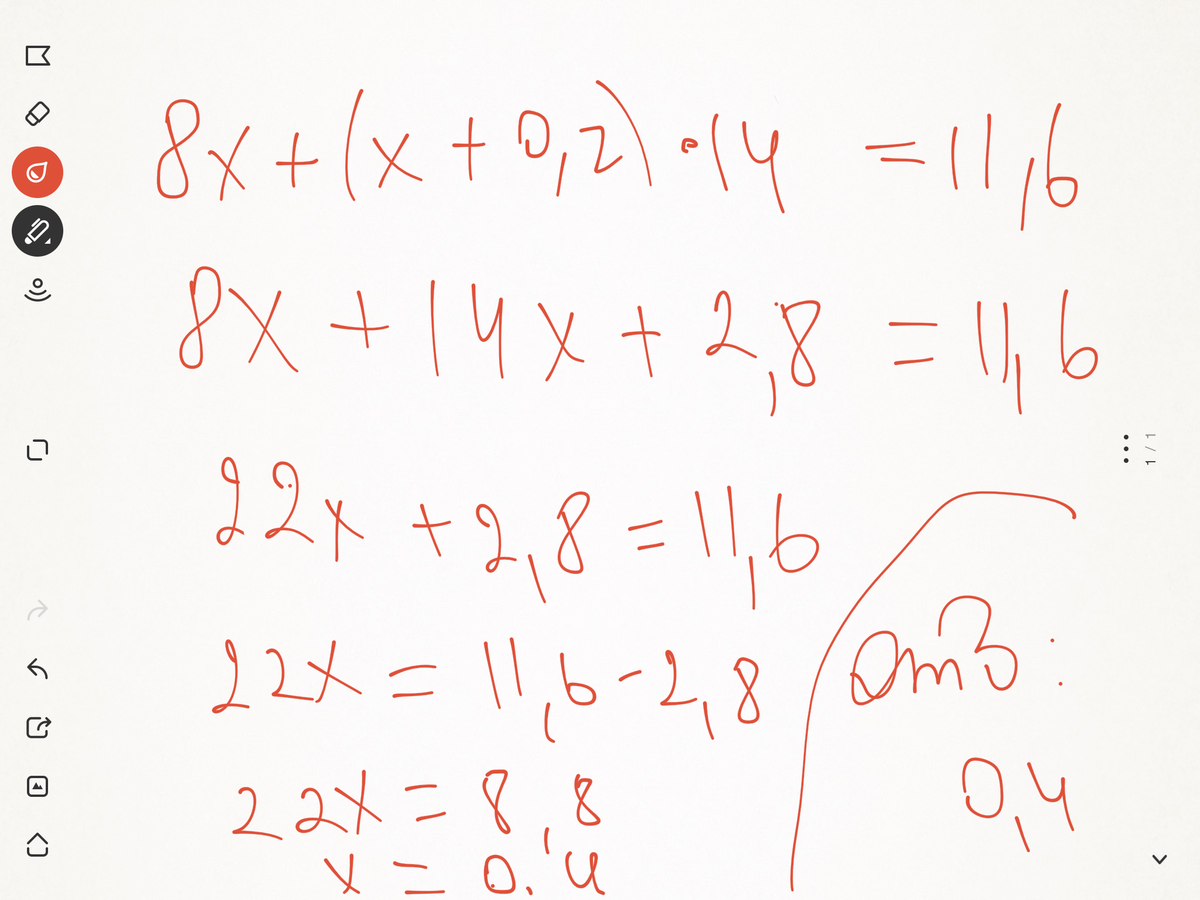 8x + (x + 0,2) · 14 = 11,6
8x + 14x + 2,8 = 11,6
22x + 2,8 = 11,6
22x = 11,6 - 2,8
22x = 8,8
x = 0,4
Отв:
0,4
1 / 1